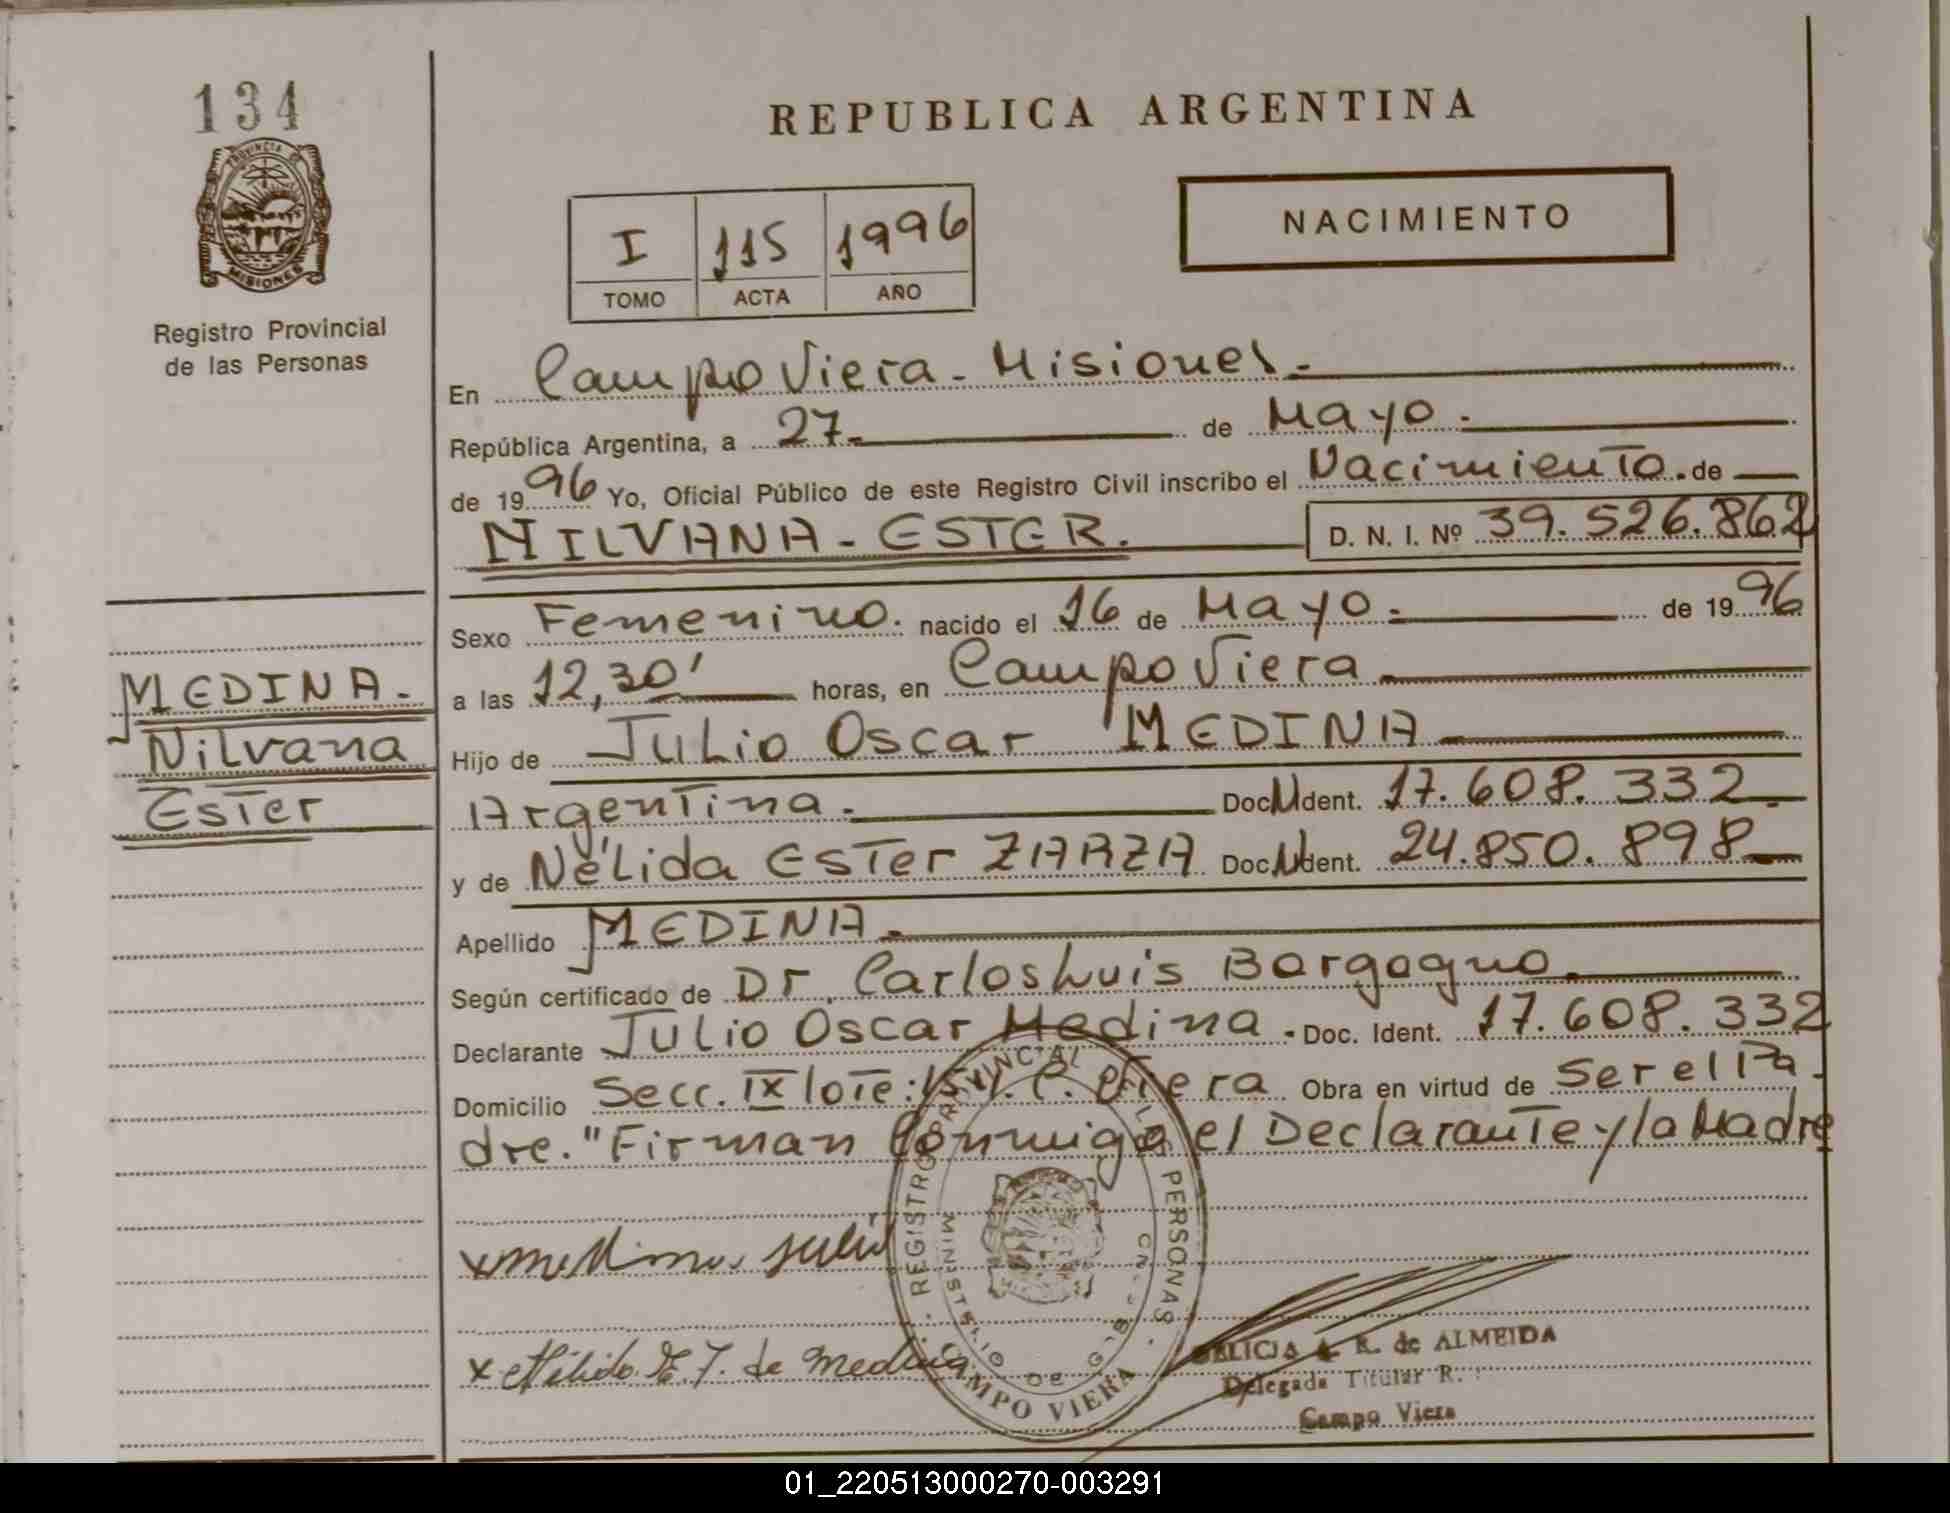 134
PROVINCIA DE
MISIONES
Registro Provincial
de las Personas
REPUBLICA ARGENTINA
I 115 1996
TOMO ACTA AÑO
NACIMIENTO
En Campo Viera - Misiones.-
República Argentina, a 27.- de Mayo.-
de 1996 Yo, Oficial Público de este Registro Civil inscribo el Nacimiento. de
NILVANA - ESTER. D. N. I. Nº 39.526.862
Sexo Femenino. nacido el 16 de Mayo.- de 1996
a las 12,30' horas, en Campo Viera
Hijo de Julio Oscar MEDINA
Argentina.- Doc. Ident. 17.608.332.
y de Nélida Ester ZARZA Doc. Ident. 24.850.898
Apellido MEDINA.-
Según certificado de Dr. Carlos Luis Borgogno.
Declarante Julio Oscar Medina. Doc. Ident. 17.608.332
Domicilio Secc. IX lote: C. Viera Obra en virtud de Ser el Pa-
dre. "Firman Conmigo el Declarante y la Madre
MEDINA.
Nilvana
Ester
x medina julio
x Nélida E. Z. de Medina
REGISTRO PROVINCIAL DE LAS PERSONAS
MINISTERIO DE GOBIERNO
CAMPO VIERA
R. de ALMEIDA
Delegada Titular R.
Campo Viera
01_220513000270-003291